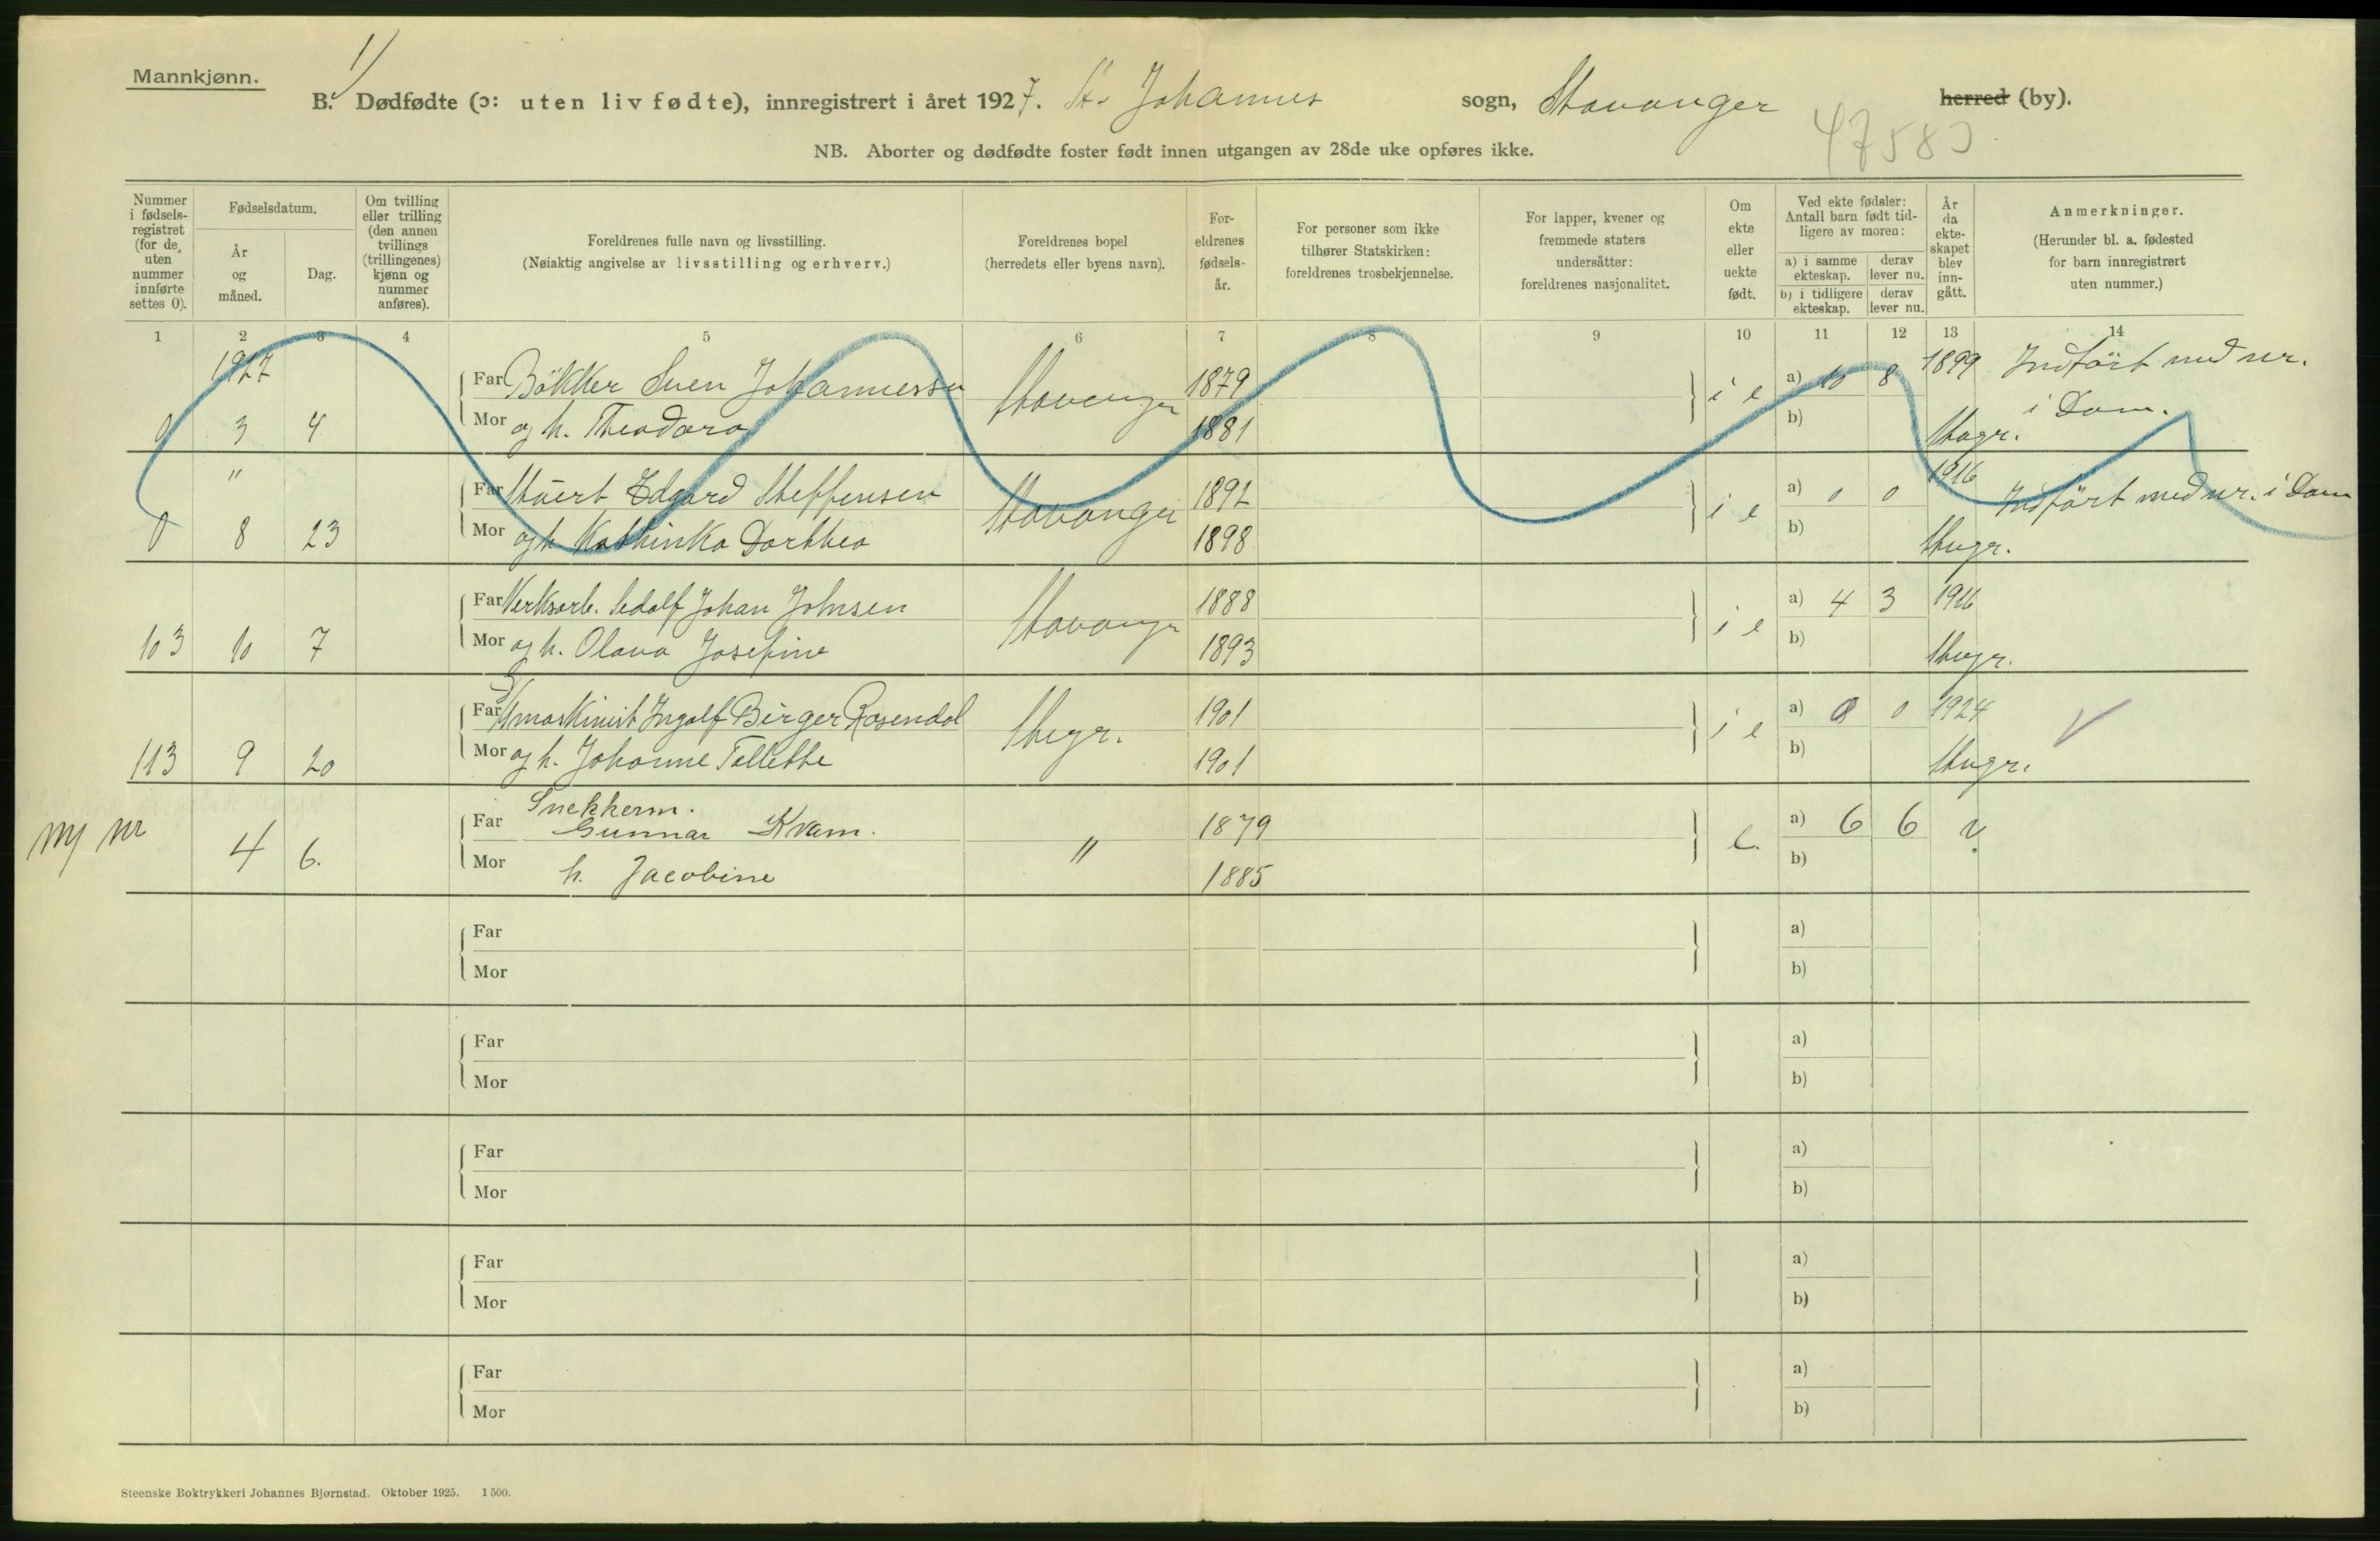 Mannkjønn.
1/
B. Dødfødte (ɔ: uten liv fødte), innregistrert i året 1927. St. Johannes sogn, Stavanger herred (by).
4758
NB. Aborter og dødfødte foster født innen utgangen av 28de uke opføres ikke.
Nummer i fødsels-registret (for de uten nummer innførte settes 0).
Fødselsdatum.
År og måned.
Dag.
Om tvilling eller trilling (den annen tvillings (trillingenes) kjønn og nummer anføres).
Foreldrenes fulle navn og livsstilling.
(Nøiaktig angivelse av livsstilling og erhverv.)
Foreldrenes bopel
(herredets eller byens navn).
For-eldrenes fødsels-år.
For personer som ikke tilhører Statskirken: foreldrenes trosbekjennelse.
For lapper, kvener og fremmede staters undersåtter: foreldrenes nasjonalitet.
Om ekte eller uekte født.
Ved ekte fødsler: Antall barn født tid-ligere av moren:
a) i samme ekteskap.
derav lever nu.
b) i tidligere ekteskap.
derav lever nu.
År da ekte-skapet blev inn-gått.
Anmerkninger.
(Herunder bl. a. fødested for barn innregistrert uten nummer.)
1 2 3 4 5 6 7 8 9 10 11 12 13 14
1927
Far Bökker Sven Johannessen Stavanger 1879 i e a) 10 8 1899 Indfört med nr.
0 3 4 Mor og h. Theodora 1881 b) Stvgr. i Dom.
"
Far Edgard Steffensen Stavanger 1892 i e a) 0 0 1916 Indfört med nr. i Dom
0 8 23 Mor og h. Kathinka Dorthea 1898 b) Stvgr.
Far Verksarb. Adolf Johan Johnsen Stavanger 1888 i e a) 4 3 1916
103 10 7 Mor og h. Olava Josefine 1893 b) Stvgr.
Far maskinist Ingolf Birger Rosendal Stvgr. 1901 i e a) 0 0 1924
113 9 20 Mor og h. Johanne Tallette 1901 b) Stvgr.
Snekkerm.
Far Gunnar Kvam. " 1879 e. a) 6 6 ?
ny nr 4 6. Mor h. Jacobine 1885 b)
Far a)
Mor b)
Far a)
Mor b)
Far a)
Mor b)
Far a)
Mor b)
Far a)
Mor b)
Steenske Boktrykkeri Johannes Bjørnstad. Oktober 1925. 1500.